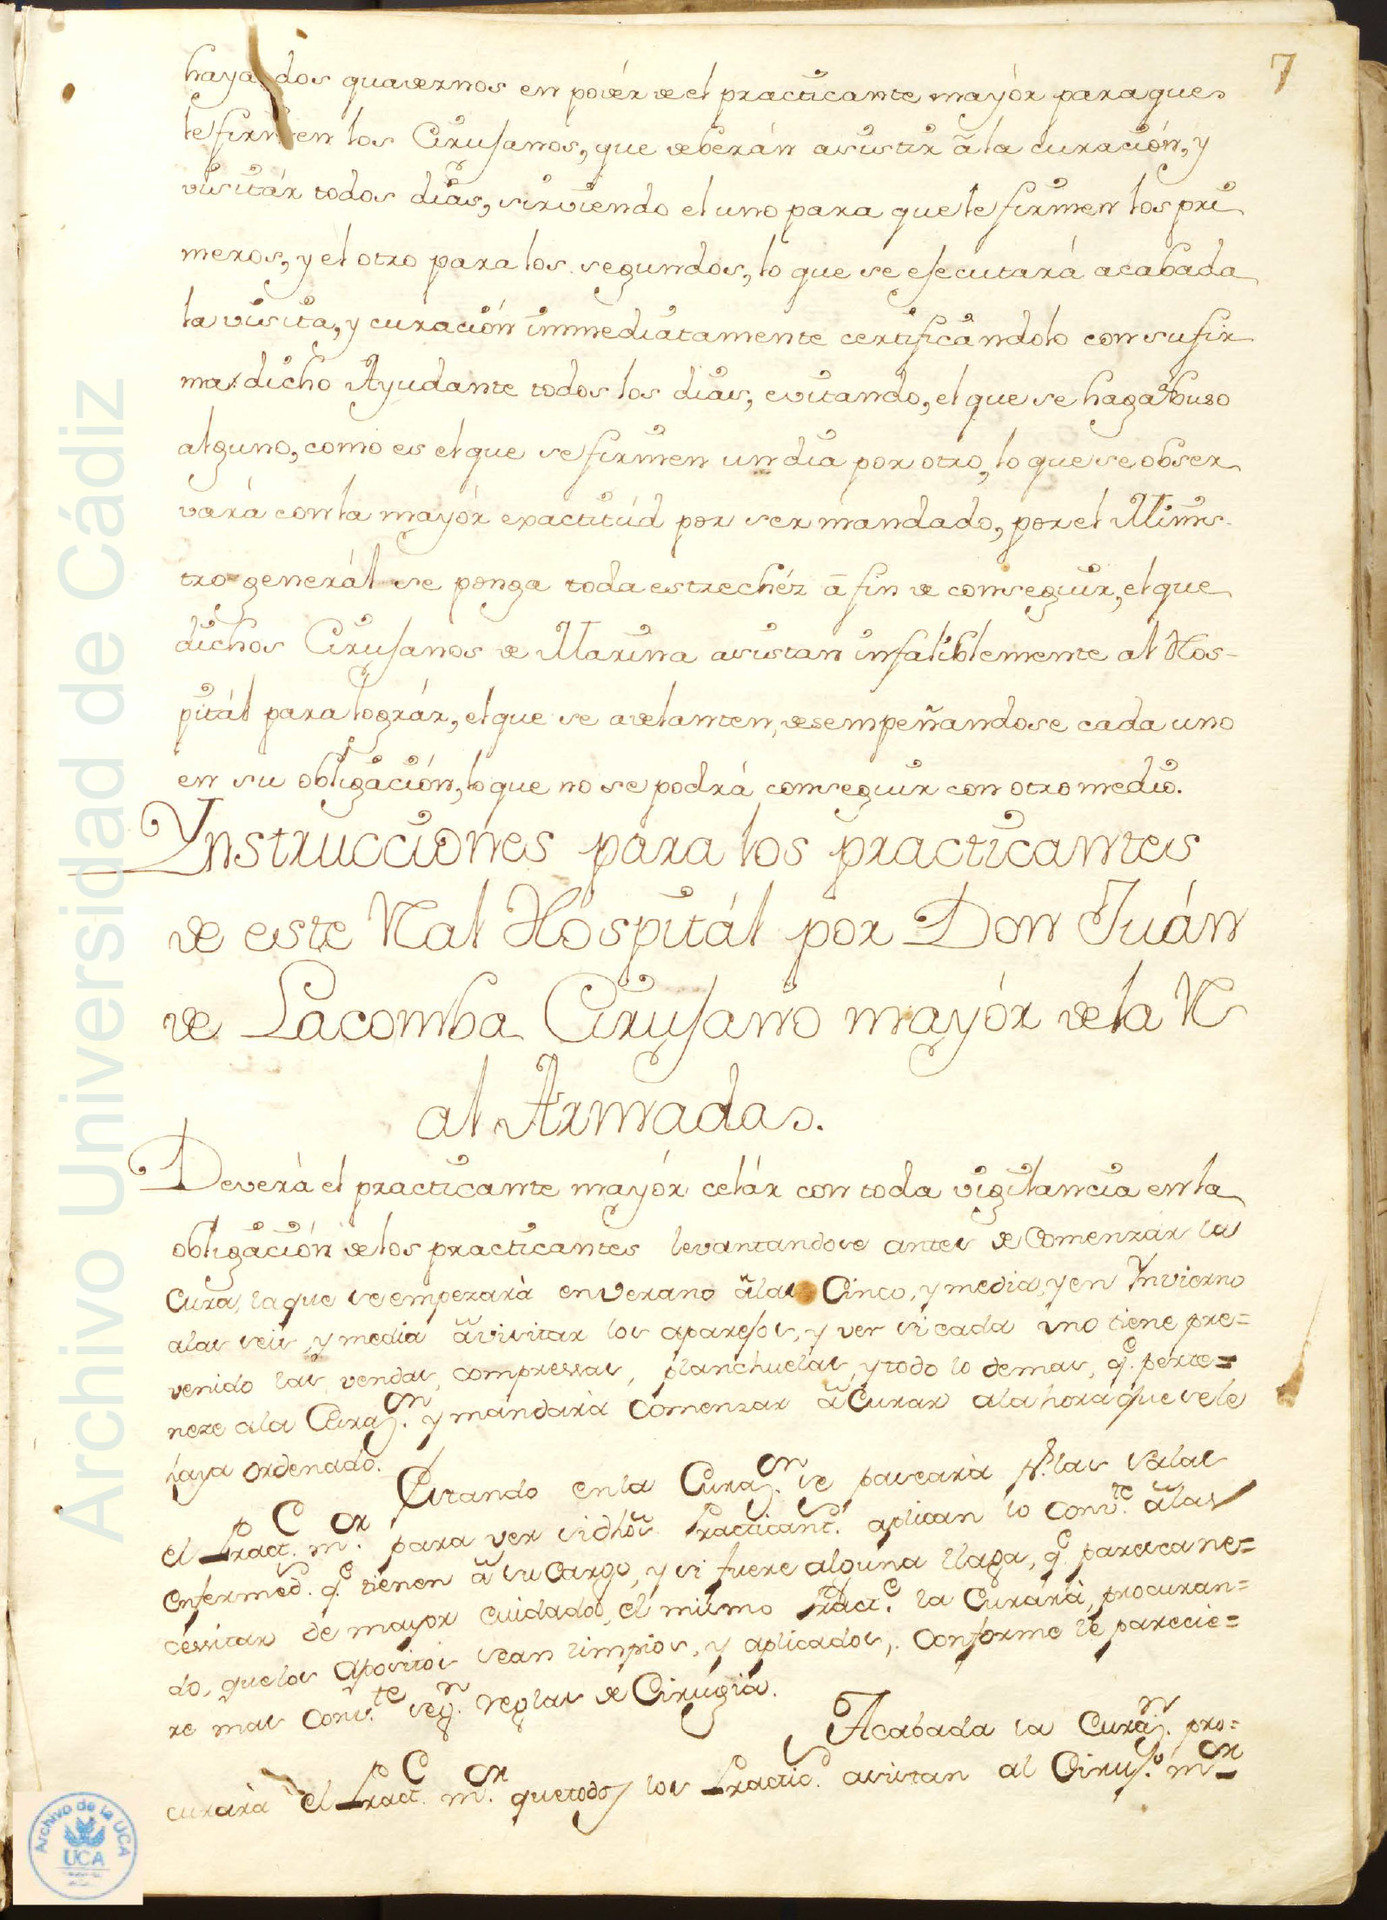 7
haya dos quadernos en podér de el practicante mayór para que
le firmen los Cirujanos, que deberán asistir â la curación, y
visitár todos dias, sirviendo el uno para que le firmen los pri
meros, y el otro para los segundos, lo que se ejecutará acabada
la visita, y curación immediatamente certificandolo con su fir
ma dicho Ayudante todos los dias, evitando, el que se haga abuso
alguno, como es el que se firmen un dia por otro, lo que se obser
vará con la mayór exactitúd por ser mandado, por el Minis-
tro generál se ponga toda estrechéz â fin de conseguir, el que
dichos Cirujanos de Marina asistan infaliblemente al Hos-
pitál para lográr, el que se adelanten, desempeñandose cada uno
en su obligación, lo que no se podrá conseguir con otro medio.
Ynstrucciones para los practicantes
de este Ral Hospitál por Don Juán
de Lacomba Cirujano mayór de la R
al Armadas.
Deverá el practicante mayór celár con toda vigilancia en la
obligación de los practicantes levantandose antes de Comenzar la
Cura, la que se empezarà en Verano â las Cinco, y media, y en Ynvierno
a las seis, y media â visitar los aparejos, y ver si cada uno tiene pre=
venido las vendas, compressas, planchuelas, y todo lo demas, q.e perte=
neze a la Curaz.on y mandarà Comenzar â Curar a la hora que se le
haya ordenado.
Estando en la Curaz.on se pasearà p.r las Salas
el Pract.e m.or para ver si dhôs Practicant.s aplican lo Conv.te â las
Enfermed.s q.e tienen â su Cargo, y si fuere alguna llaga, q.e paresca ne=
cessitar de mayor cuidado, el mismo Pract.e la Curarà, procuran=
do, que los Apositos sean limpios, y aplicados, Conforme le parecie=
re mas Conv.te seg.n Reglas de Cirugia.
Acabada la Curaz.n pro=
curarà el Pract.e m.or que todos los Practic.s asistan al Ciruj.o m.or
Archivo Universidad de Cádiz
Archivo de la UCA
UCA